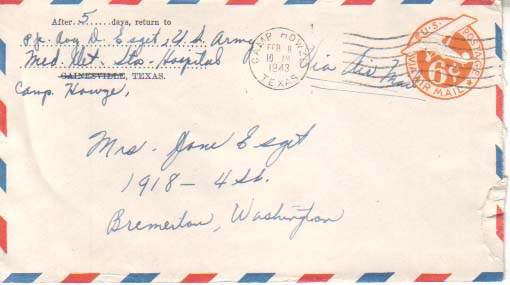 After 5 days, return to
Pfc. Roy D. Esget, U.S. Army
Med. Det. Sta. Hospital
GAINESVILLE, TEXAS.
Camp Howze,
CAMP HOWZE
FEB 8
1943
TEXAS
Via Air Mail
U.S. POSTAGE
6¢
VIA AIR MAIL
Mrs. Jane Esget
1918 – 4th.
Bremerton, Washington